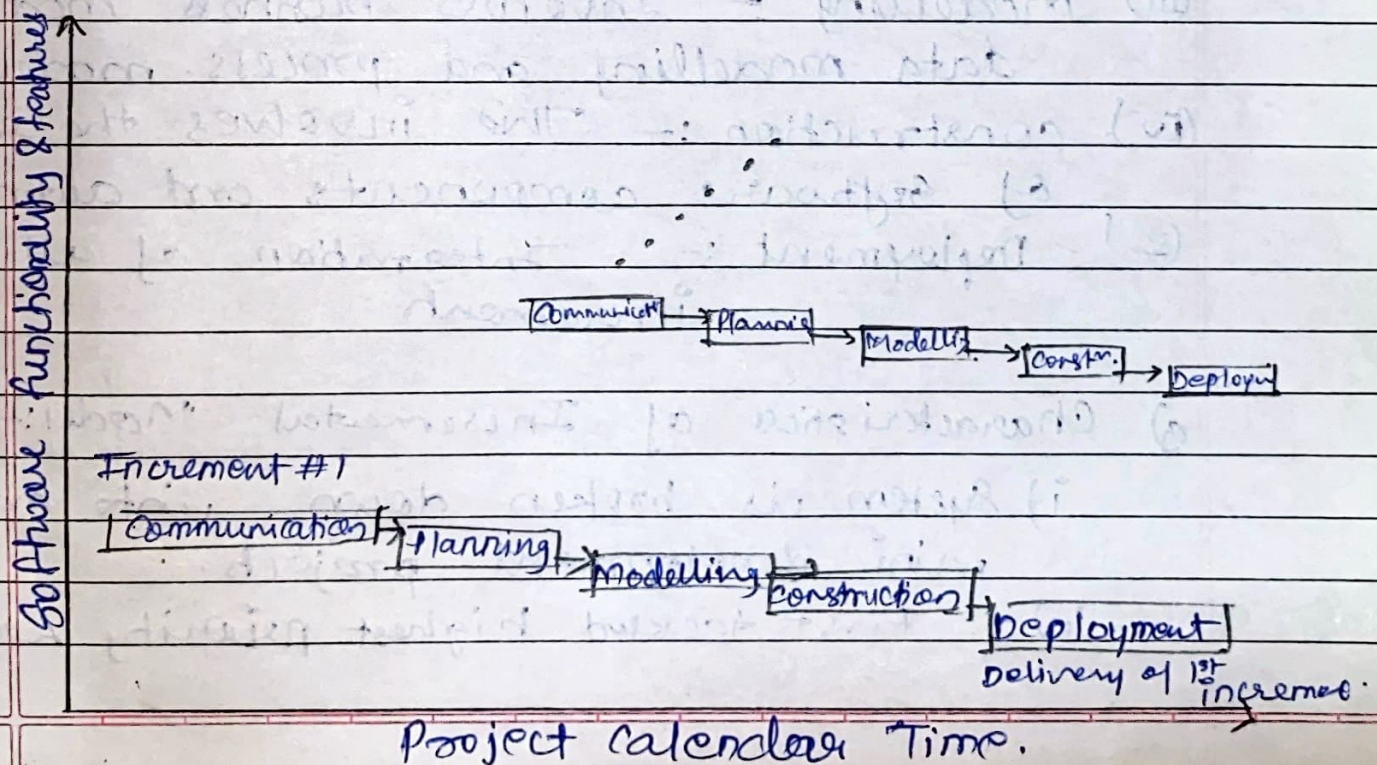 Software : functionality & features
Communicat
Plannig
Modellig
Constn.
Deploym
Increment #1
Communication
Planning
Modelling
Construction
Deployment
Delivery of 1st
increment.
Project Calendar Time.